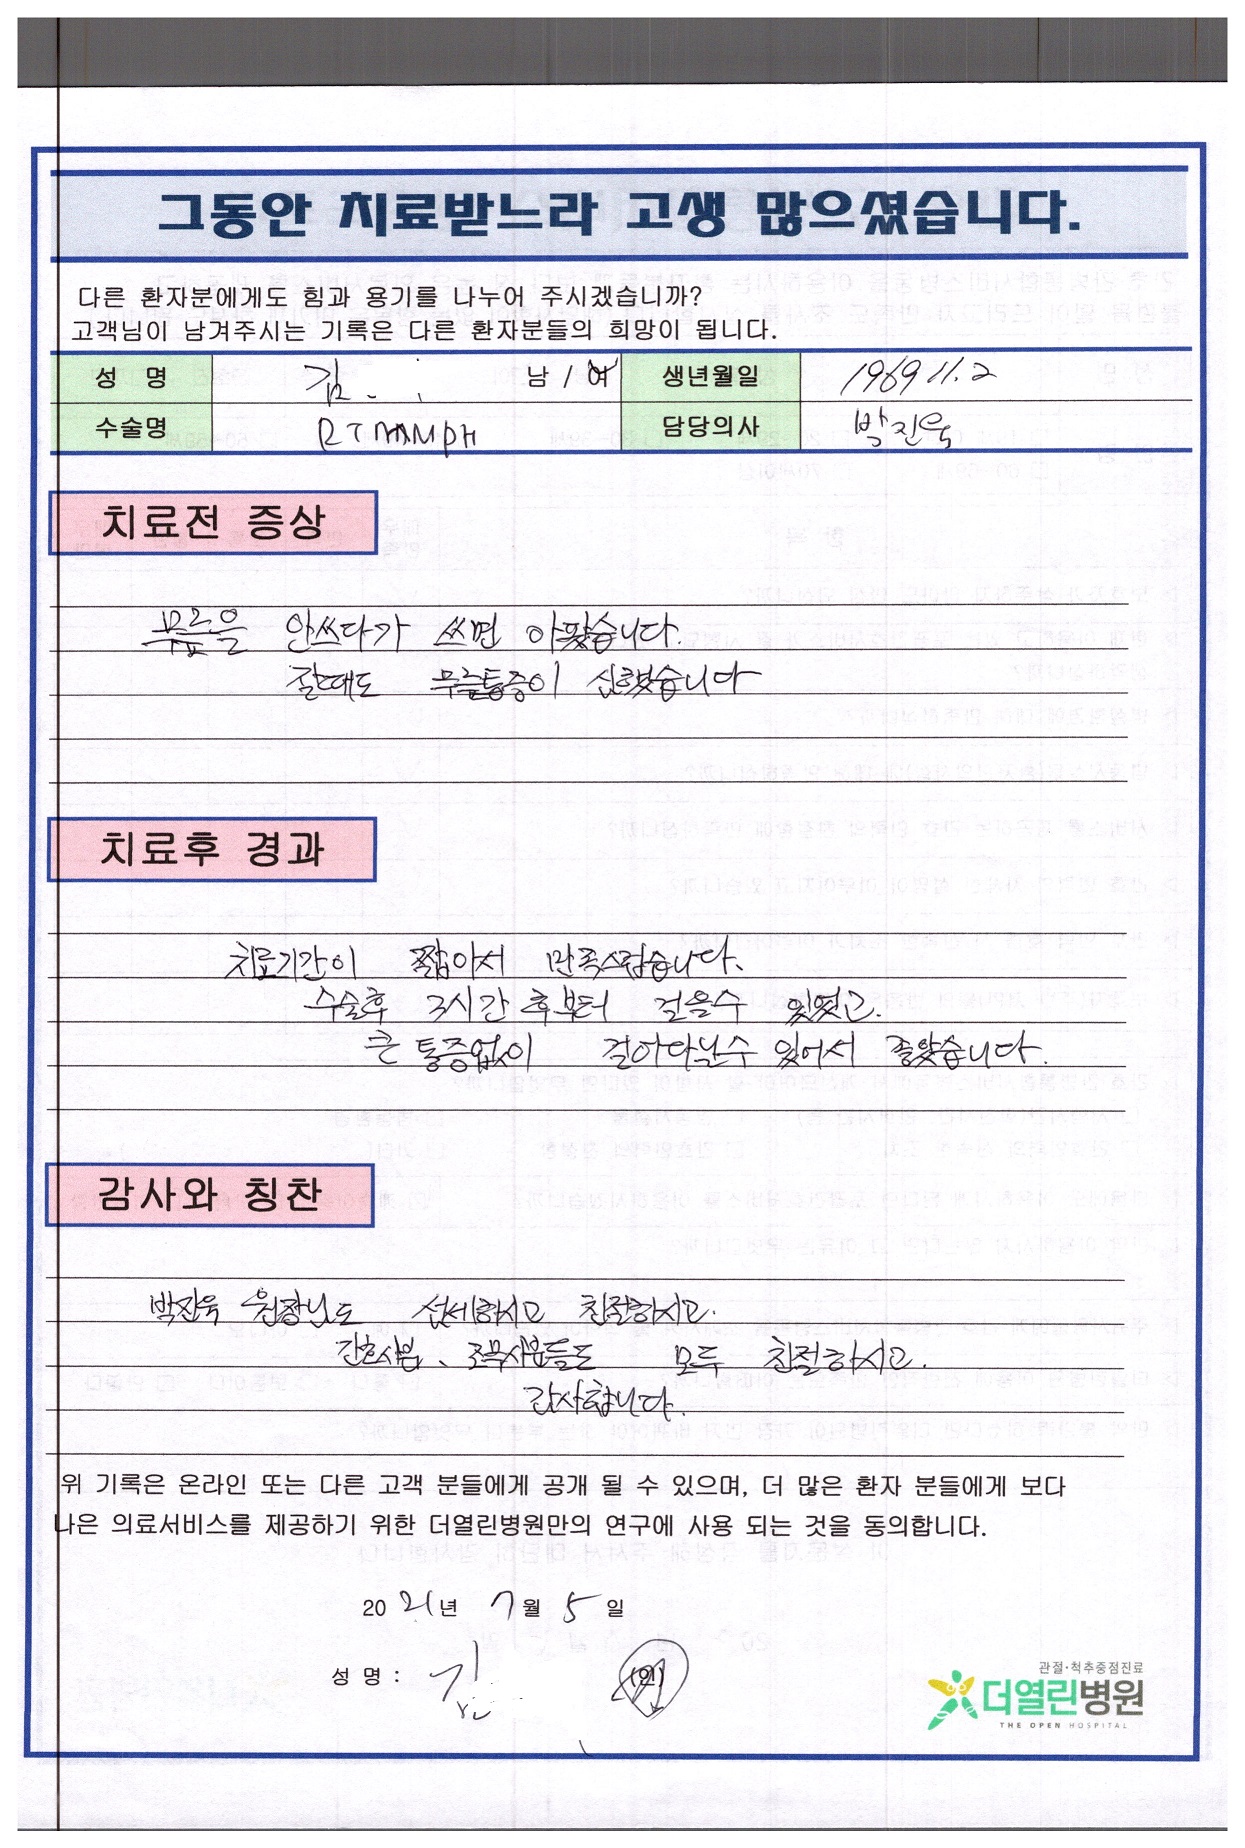 그동안 치료받느라 고생 많으셨습니다.
다른 환자분에게도 힘과 용기를 나누어 주시겠습니까?
고객님이 남겨주시는 기록은 다른 환자분들의 희망이 됩니다.
성 명 김 남 / 여 생년월일 1969 11. 2
수술명 담당의사 박진욱
치료전 증상
무릎을 안쓰다가 쓰면 아팠습니다.
잘때도 무릎통증이 심했습니다
치료후 경과
치료기간이 짧아서 만족스럽습니다.
수술후 3시간 후부터 걸을수 있었고.
큰 통증없이 걸어다닐수 있어서 좋았습니다.
감사와 칭찬
박진욱 원장님도 섬세하시고 친절하시고.
간호사분、조무사분들도 모두 친절하시고.
감사합니다.
위 기록은 온라인 또는 다른 고객 분들에게 공개 될 수 있으며, 더 많은 환자 분들에게 보다
나은 의료서비스를 제공하기 위한 더열린병원만의 연구에 사용 되는 것을 동의합니다.
20 21년 7월 5일
성 명 : 김 (인)
관절·척추중점진료
더열린병원
THE OPEN HOSPITAL